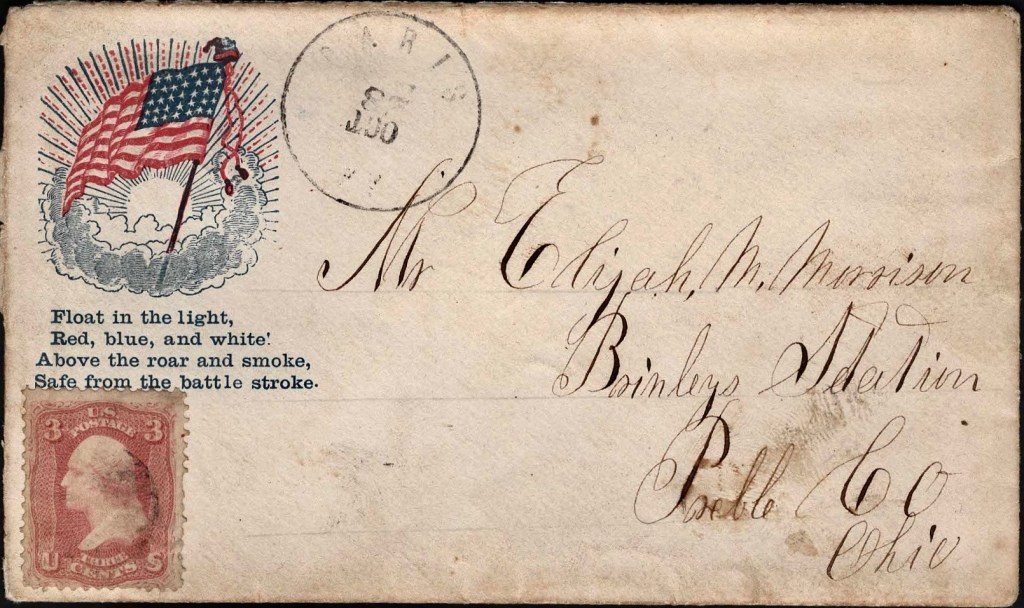 PARIS
OCT
Float in the light,
Red, blue, and white!
Above the roar and smoke,
Safe from the battle stroke.
Mr Elijah, M. Morrison
Brinleys Station
Preble Co
Ohio
U.S.
POSTAGE
3 3
U S
CENTS